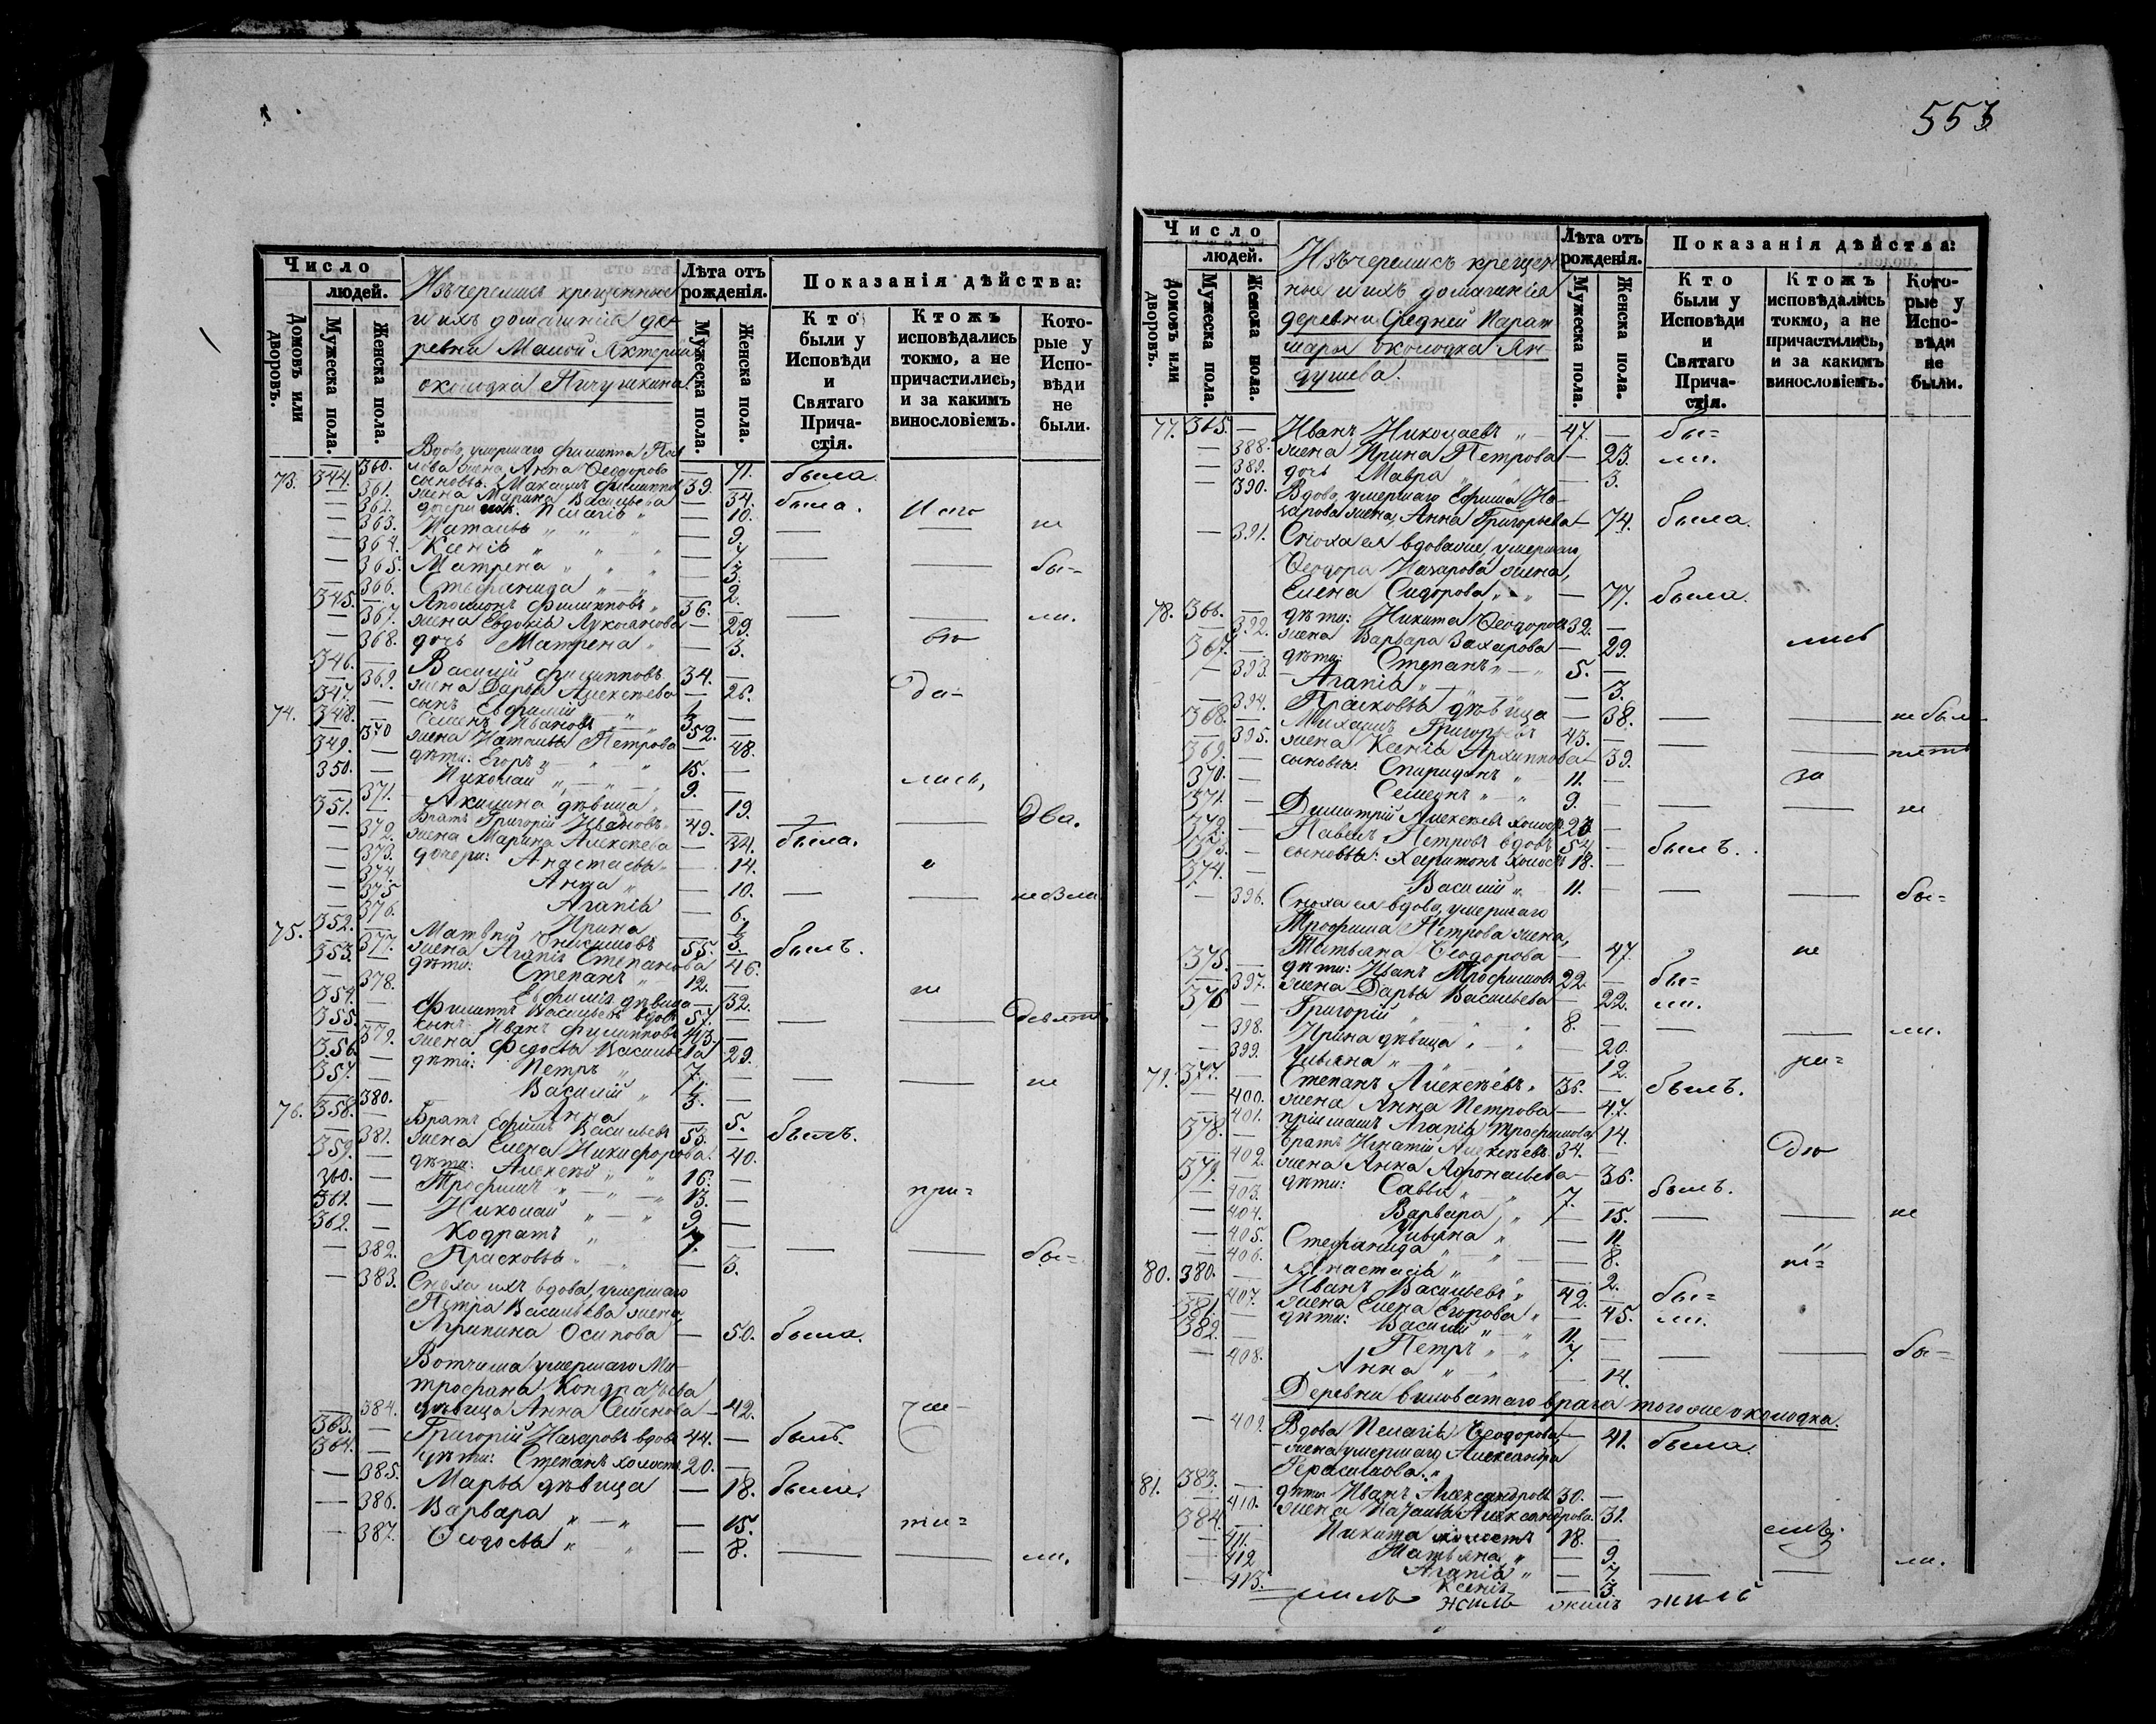 553
Число
людей.
Домовъ или дворовъ.
Мужеска пола.
Женска пола.
Изъ черемисъ крещенные
и ихъ домашнія де-
ревни Малой
околодка Пичушкина
Лѣта отъ рожденія.
Мужеска пола.
Женска пола.
Показанія дѣйства:
Кто были у Исповѣди и Святаго Прича-стія.
Ктожъ исповѣдались токмо, а не причастились, и за какимъ винословіемъ.
Кото-рые у Испо-вѣди не были.
Вдова, умершаго Филиппа
73. 344. 360. жена, Анна Ѳеодорова — 71. была.
361. сыновья: Максимъ Филиппов 39.
362. жена Марина Васильева — 34. была.
363. дочери Пелагіь — 10.
364. Наталья — 9. не
365. Ксеніь — 7.
Матрена — 3. бы-
366. Стефанида — 2.
345. Филипповъ 36.
367. жена Евдокіь — 29. ли.
368. дочь Матрена — 3.
346. Василій Филипповъ 34. —
369. жена Дарья Алексѣева — 26. да-
347. сынъ Евфимій 1
74. 348. Семенъ Ивановъ 52. —
370 жена Наталья Петрова — 48.
349. дѣти: Егоръ 15. —
350. Николай 9. — лись,
371. Акилина дѣвица — 19.
351. Братъ Григорій Ивановъ 49. два.
372. жена Марина Алексѣева — 34. была.
373. дочери: Анастасья — 14.
374. Анна — 10.
375 Агапіь — 6.
376. Ирина
75. 352. Матвѣй Онисимовъ 55. былъ.
377. жена Агапіь Степанова 46.
353. дѣти: Степанъ 12. —
378. Евфиміь дѣвица — 32. не
354. Филиппъ Васильевъ вдовъ 57.
355. сынъ Иванъ Филипповъ девять
379. жена Ѳедосья Васильева 29.
356. дѣти: Петръ 7.
357. Василій 3. не
380. Анна 5.
76. 358. Братъ Ефимъ Васильевъ 53. — былъ.
381. жена Елена Никифорова. 40.
359. дѣти: Алексѣй 16. —
360. Трофимъ 13. — при=
361. Николай 9
362. Кодратъ 7.
382. Прасковья — 3. бы=
383. Сноха ихъ вдова, умершаго
Петра Васильева жена,
Агрипина Осипова — 50. была.
Вотчима умершаго Ми-
трофана Кондратьева
384. дѣвица Анна Семенова — 42.
363. Григорій Назаровъ вдовъ 44. — былъ.
364. дѣти: Степанъ холостъ 20. —
385. Марья дѣвица — 18. были.
386. Варвара — 15.
387. Ѳедосья — 8. ли.
Число
людей.
Домовъ или дворовъ.
Мужеска пола.
Женска пола.
Изъ черемисъ крещен-
ные и ихъ домашнія
деревни Средней Парат-
мары околодка Ян-
душева.
Лѣта отъ рожденія.
Мужеска пола.
Женска пола.
Показанія дѣйства:
Кто были у Исповѣди и Святаго Прича-стія.
Ктожъ исповѣдались токмо, а не причастились, и за какимъ винословіемъ.
Кото-рые у Испо-вѣди не были.
77. 365. — Иванъ Николаевъ 47. — бы=
388. жена Ирина Петрова — 23. ли.
389. дочь Мавра — 3.
390. Вдова, умершаго Ефима На-
зарова жена, Анна Григорьева — 74. была.
391. Сноха ея вдова же, умершаго
Ѳеодора Назарова жена,
Елена Сидорова — 77. была.
78. 366. дѣти: Никита Ѳеодоровъ 32. —
392. жена Варвара Захарова — 29. лись
367. дѣти: Степанъ 5. —
393. Агапіь — 3.
394. Прасковья дѣвица — 38. не были
368. Михаилъ Григорьевъ 43.
395. жена Ксеніь Архиппова — 39.
369. сыновья: Спиридонъ 11. — за
370. Семенъ 9. не
371. Димитрій Алексѣевъ холостъ 23
372. Павелъ Петровъ вдовъ 54. — былъ.
373. сыновья: Харитонъ холостъ 18. —
374. Василій 11. бы=
396. Сноха ея вдова, умершаго
Трофима Петрова жена,
Татьяна Ѳеодорова — 47. не
375. дѣти: Иванъ Трофимовъ 22. — бы=
397. жена Дарья Васильева — 22. ли.
376 Григорій 8. — ли.
398. Ирина дѣвица — 20.
399. Ульяна — 12.
79. 377. Степанъ Алексѣевъ 36. — былъ.
400. жена Анна Петрова — 47.
401. пріемышъ Агапіь Трофимова 14.
378. Братъ Игнатій Алексѣевъ 34.
402. жена Анна Афонасьева — 36.
379. дѣти: Савва 7. — былъ.
403. Варвара — 15. не
404. Ульяна — 11
405. Стефанида — 8.
406. Анастасіь 2.
80. 380. Иванъ Васильевъ 42. — бы=
407. жена Елена Егорова — 45. ли.
381. дѣти: Василій 11. —
382. Петръ 7. бы=
408. Анна — 14.
Деревни Виловатаго врага того же околодка.
409. Вдова Пелагіь Ѳеодорова, — 41. была.
жена умершаго Александра
Герасимова.
81. 383. дѣти Иванъ Александровъ 30. —
410. жена Наталья Александрова 31.
384. Никита холостъ 18. —
411. Татьяна — 9. ли.
412 Агапіь — 7.
413. Ксеніь — 3.